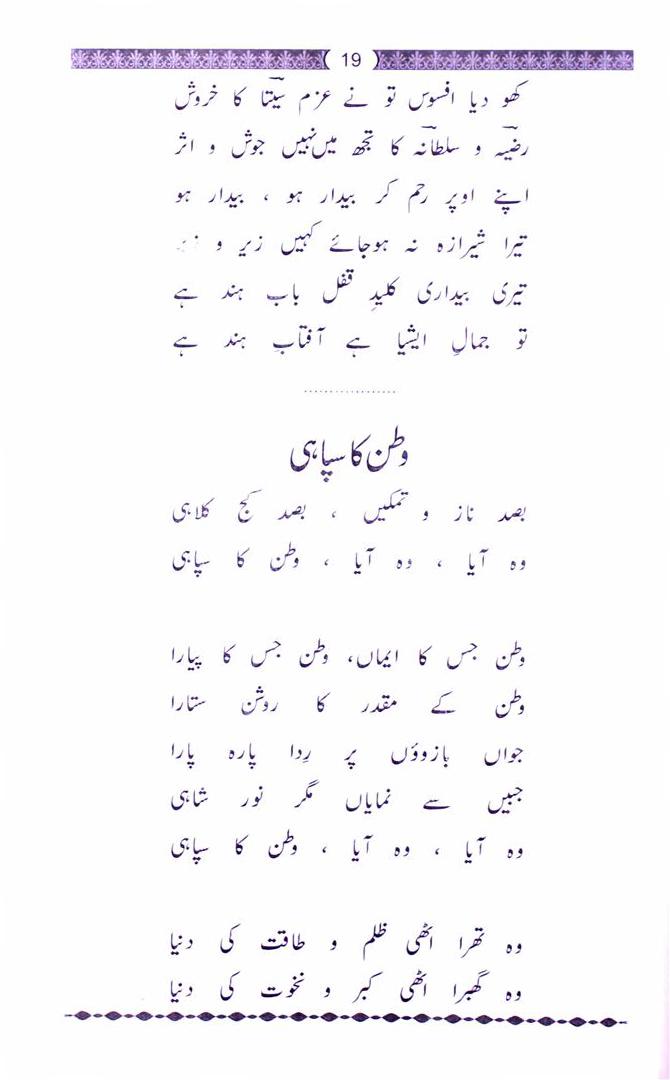 19
کھو دیا افسوس تو نے عزم سیتا کا خروش
رضیہ و سلطانہ کا تجھ میں نہیں جوش و اثر
اپنے اوپر رحم کر بیدار ہو ، بیدار ہو
تیرا شیرازہ نہ ہوجائے کہیں زیر و زبر
تیری بیداری کلیدِ قفل باب ہند ہے
تو جمالِ ایشیا ہے آفتابِ ہند ہے
................
وطن کا سپاہی
بصد ناز و تمکیں ، بصد کج کلاہی
وہ آیا ، وہ آیا ، وطن کا سپاہی
وطن جس کا ایماں، وطن جس کا پیارا
وطن کے مقدر کا روشن ستارا
جواں بازوؤں پر رِدا پارہ پارا
جبیں سے نمایاں مگر نور شاہی
وہ آیا ، وہ آیا ، وطن کا سپاہی
وہ تھرا اٹھی ظلم و طاقت کی دنیا
وہ گھبرا اٹھی کبر و نخوت کی دنیا